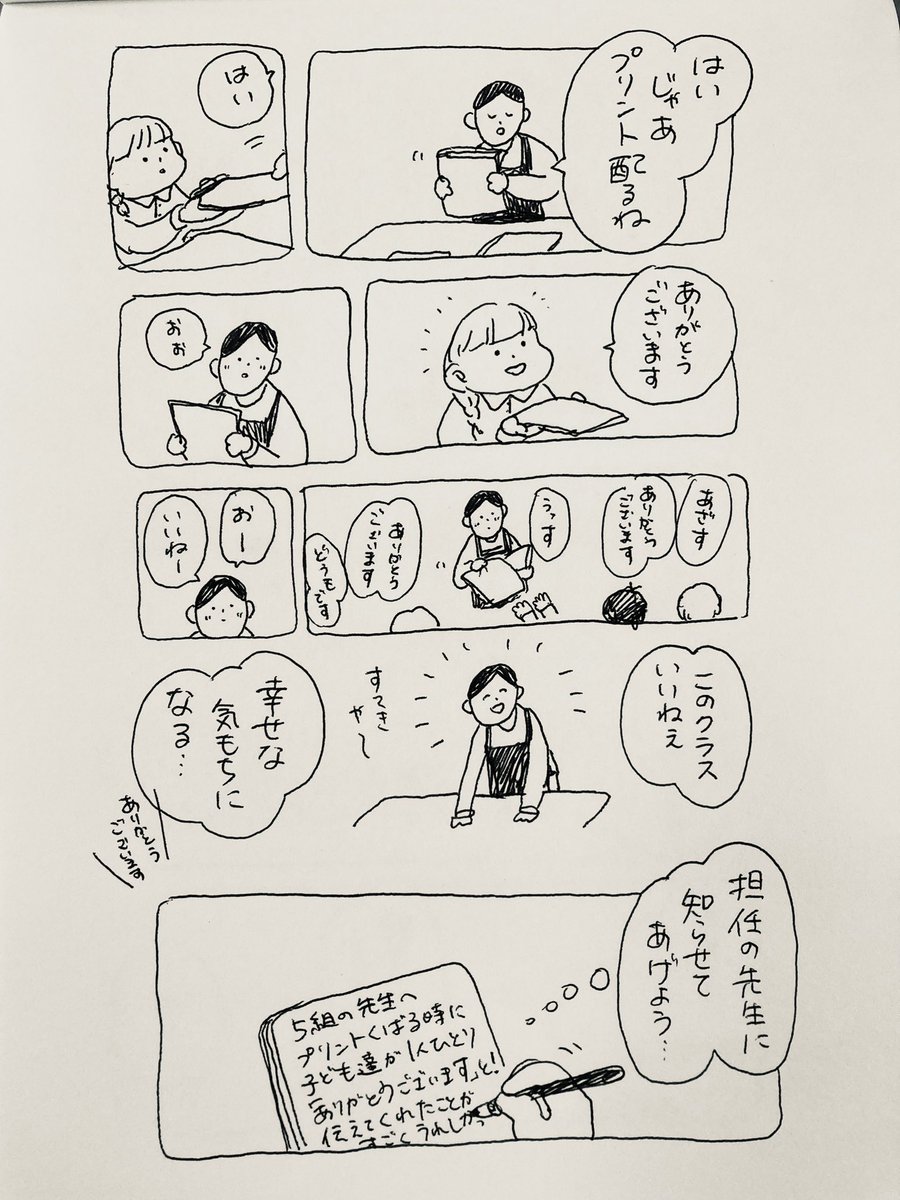 はい
じゃあ
プリント配るね
はい
ありがとう
ございます
おぉ
あざす
ありがとう
ございます
うっす
ありがとう
ございます
どうもです
おー
いいねー
このクラス
いいねぇ
すてき
や〜
幸せな
気もちに
なる…
ありがとう
ございます
担任の先生に
知らせて
あげよう…
5組の先生へ
プリントくばる時に
子ども達が1人ひとり
「ありがとうございます」と!
伝えてくれたことが
すごくうれしかっ